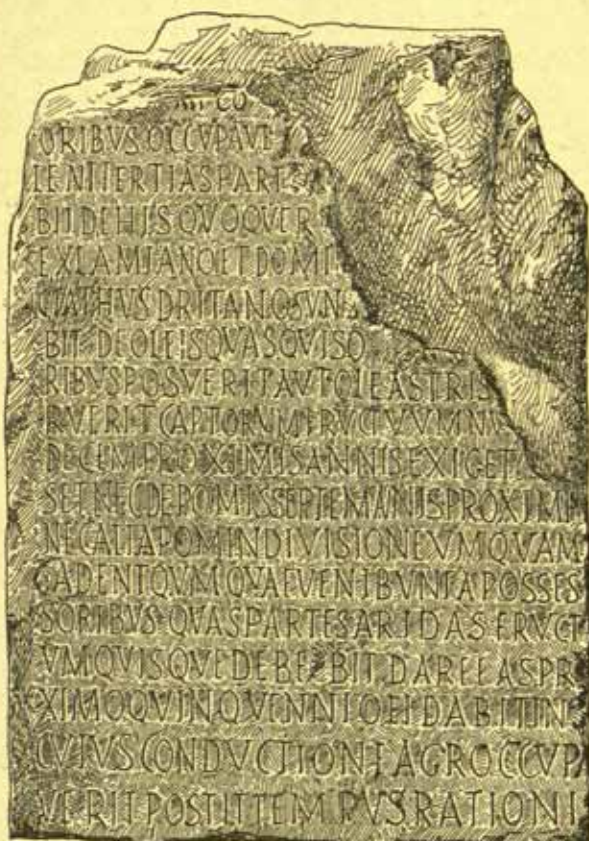 CO
ORIBVS OCCVPAVE
TENT TERTIAS PARTE
BIT DE HIS QVOQVE R
EX LAMIANO ET DOMI
THVSDRITANO SVN
BIT DE OLEIS QVAS QVISQ
RIBVS POSVERIT AVT OLEASTRIS
RVERIT CAPTORVM FRVCTVVM NV
DECEM PROXIMIS ANNIS EXIGET
SET NEC DE POMIS SEPTEM ANIS PROXIMI
NEC ALIA POM IN DIVISIONE VMQVAM
CADENT QVM QVAE VENIBVNT A POSSES
SORIBVS QVAS PARTES ARIDAS FRVCT
VM QVISQVE DEBEBIT DARE EAS PR
XIMO QVINQVENNIO EI DABIT IN
CVIVS CONDVCTIONE AGR OCCVPA
VERIT POST IT TEMPVS RATIONI